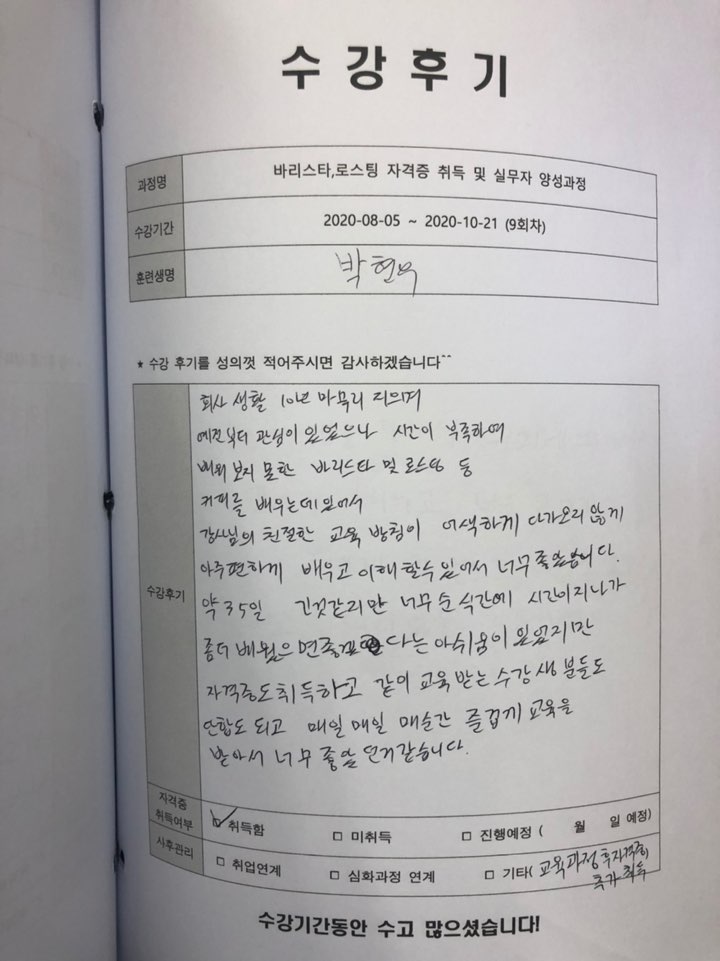 수강후기
과정명 바리스타,로스팅 자격증 취득 및 실무자 양성과정
수강기간 2020-08-05 ~ 2020-10-21 (9회차)
훈련생명 박현욱
★ 수강 후기를 성의껏 적어주시면 감사하겠습니다^^
회사 생활 10년 마무리 지으며
예전부터 관심이 있었으나 시간이 부족하여
배워 보지 못한 바리스타 및 로스팅 등
커피를 배우는데 있어서
강사님의 친절한 교육 방침이 어색하게 다가오지 않게
아주 편하게 배우고 이해 할수 있어서 너무 좋았습니다.
수강후기 약 35일 긴것같지만 너무 순식간에 시간이 지나가
좀더 배웠으면 다는 아쉬움이 있었지만
자격증도 취득하고 같이 교육 받는 수강생 분들도
단합도 되고 매일 매일 매순간 즐겁게 교육을
받아서 너무 좋았던거 같습니다.
자격증 취득여부 ☑ 취득함 □ 미취득 □ 진행예정 ( 월 일 예정)
사후관리 □ 취업연계 □ 심화과정 연계 □ 기타( 교육과정 후 자격증
추가 취득
수강기간동안 수고 많으셨습니다!